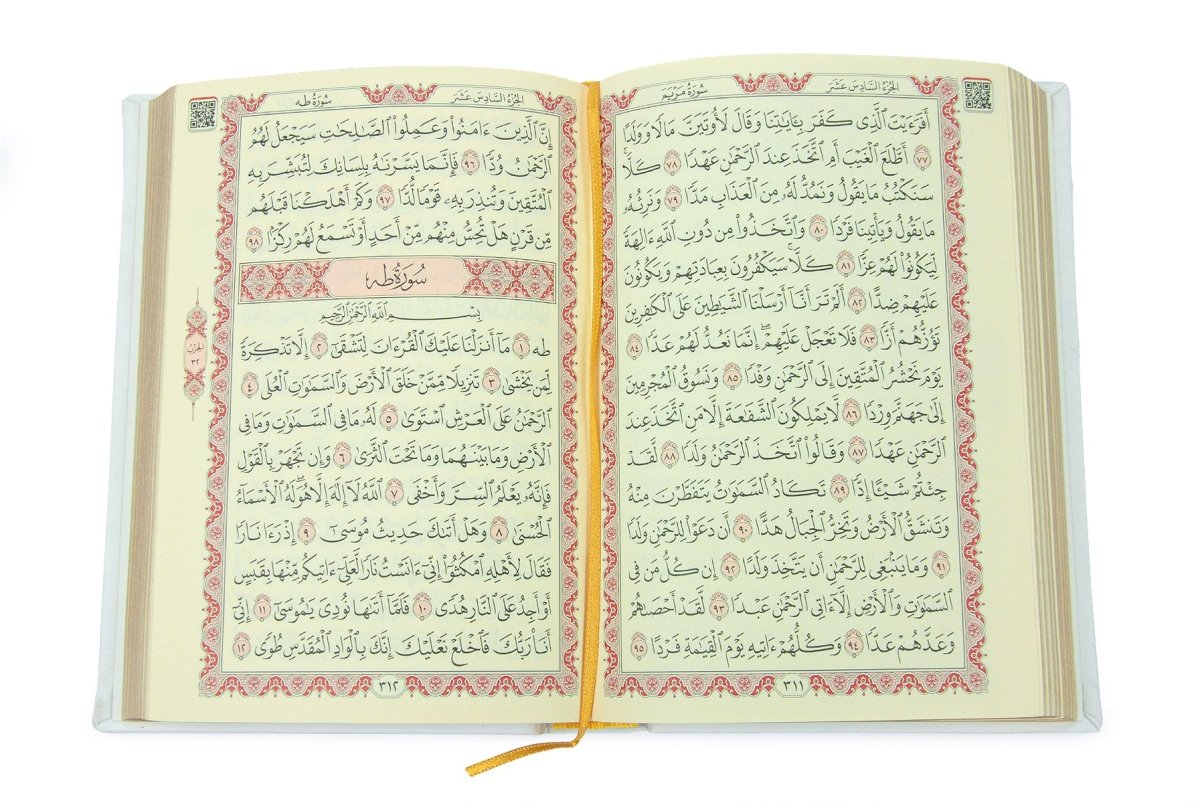 الجزء السادس عشر
سورة مريم
أَفَرَءَيْتَ ٱلَّذِى كَفَرَ بِـَٔايَٰتِنَا وَقَالَ لَأُوتَيَنَّ مَالًا وَوَلَدًا
٧٧ أَطَّلَعَ ٱلْغَيْبَ أَمِ ٱتَّخَذَ عِندَ ٱلرَّحْمَٰنِ عَهْدًا ٧٨ كَلَّا ۚ
سَنَكْتُبُ مَا يَقُولُ وَنَمُدُّ لَهُۥ مِنَ ٱلْعَذَابِ مَدًّا ٧٩ وَنَرِثُهُۥ
مَا يَقُولُ وَيَأْتِينَا فَرْدًا ٨٠ وَٱتَّخَذُوا۟ مِن دُونِ ٱللَّهِ ءَالِهَةً
لِّيَكُونُوا۟ لَهُمْ عِزًّا ٨١ كَلَّا ۚ سَيَكْفُرُونَ بِعِبَادَتِهِمْ وَيَكُونُونَ
عَلَيْهِمْ ضِدًّا ٨٢ أَلَمْ تَرَ أَنَّآ أَرْسَلْنَا ٱلشَّيَٰطِينَ عَلَى ٱلْكَٰفِرِينَ
تَؤُزُّهُمْ أَزًّا ٨٣ فَلَا تَعْجَلْ عَلَيْهِمْ ۖ إِنَّمَا نَعُدُّ لَهُمْ عَدًّا ٨٤
يَوْمَ نَحْشُرُ ٱلْمُتَّقِينَ إِلَى ٱلرَّحْمَٰنِ وَفْدًا ٨٥ وَنَسُوقُ ٱلْمُجْرِمِينَ
إِلَىٰ جَهَنَّمَ وِرْدًا ٨٦ لَّا يَمْلِكُونَ ٱلشَّفَٰعَةَ إِلَّا مَنِ ٱتَّخَذَ عِندَ
ٱلرَّحْمَٰنِ عَهْدًا ٨٧ وَقَالُوا۟ ٱتَّخَذَ ٱلرَّحْمَٰنُ وَلَدًا ٨٨ لَّقَدْ
جِئْتُمْ شَيْـًٔا إِدًّا ٨٩ تَكَادُ ٱلسَّمَٰوَٰتُ يَتَفَطَّرْنَ مِنْهُ
وَتَنشَقُّ ٱلْأَرْضُ وَتَخِرُّ ٱلْجِبَالُ هَدًّا ٩٠ أَن دَعَوْا۟ لِلرَّحْمَٰنِ وَلَدًا
٩١ وَمَا يَنۢبَغِى لِلرَّحْمَٰنِ أَن يَتَّخِذَ وَلَدًا ٩٢ إِن كُلُّ مَن فِى
ٱلسَّمَٰوَٰتِ وَٱلْأَرْضِ إِلَّآ ءَاتِى ٱلرَّحْمَٰنِ عَبْدًا ٩٣ لَّقَدْ أَحْصَىٰهُمْ
وَعَدَّهُمْ عَدًّا ٩٤ وَكُلُّهُمْ ءَاتِيهِ يَوْمَ ٱلْقِيَٰمَةِ فَرْدًا ٩٥
٣١١
الجزء السادس عشر
سورة طه
إِنَّ ٱلَّذِينَ ءَامَنُوا۟ وَعَمِلُوا۟ ٱلصَّٰلِحَٰتِ سَيَجْعَلُ لَهُمُ
ٱلرَّحْمَٰنُ وُدًّا ٩٦ فَإِنَّمَا يَسَّرْنَٰهُ بِلِسَانِكَ لِتُبَشِّرَ بِهِ
ٱلْمُتَّقِينَ وَتُنذِرَ بِهِۦ قَوْمًا لُّدًّا ٩٧ وَكَمْ أَهْلَكْنَا قَبْلَهُم
مِّن قَرْنٍ هَلْ تُحِسُّ مِنْهُم مِّنْ أَحَدٍ أَوْ تَسْمَعُ لَهُمْ رِكْزًۢا ٩٨
سورة طه
بِسْمِ ٱللَّهِ ٱلرَّحْمَٰنِ ٱلرَّحِيمِ
طه ١ مَآ أَنزَلْنَا عَلَيْكَ ٱلْقُرْءَانَ لِتَشْقَىٰٓ ٢ إِلَّا تَذْكِرَةً
لِّمَن يَخْشَىٰ ٣ تَنزِيلًا مِّمَّنْ خَلَقَ ٱلْأَرْضَ وَٱلسَّمَٰوَٰتِ ٱلْعُلَى ٤
ٱلرَّحْمَٰنُ عَلَى ٱلْعَرْشِ ٱسْتَوَىٰ ٥ لَهُۥ مَا فِى ٱلسَّمَٰوَٰتِ وَمَا فِى
ٱلْأَرْضِ وَمَا بَيْنَهُمَا وَمَا تَحْتَ ٱلثَّرَىٰ ٦ وَإِن تَجْهَرْ بِٱلْقَوْلِ
فَإِنَّهُۥ يَعْلَمُ ٱلسِّرَّ وَأَخْفَى ٧ ٱللَّهُ لَآ إِلَٰهَ إِلَّا هُوَ ۖ لَهُ ٱلْأَسْمَآءُ
ٱلْحُسْنَىٰ ٨ وَهَلْ أَتَىٰكَ حَدِيثُ مُوسَىٰٓ ٩ إِذْ رَءَا نَارًا
فَقَالَ لِأَهْلِهِ ٱمْكُثُوٓا۟ إِنِّىٓ ءَانَسْتُ نَارًا لَّعَلِّىٓ ءَاتِيكُم مِّنْهَا بِقَبَسٍ
أَوْ أَجِدُ عَلَى ٱلنَّارِ هُدًى ١٠ فَلَمَّآ أَتَىٰهَا نُودِىَ يَٰمُوسَىٰٓ ١١ إِنِّىٓ
أَنَا۠ رَبُّكَ فَٱخْلَعْ نَعْلَيْكَ ۖ إِنَّكَ بِٱلْوَادِ ٱلْمُقَدَّسِ طُوًى ١٢
٣١٢
الحزب
٣٢